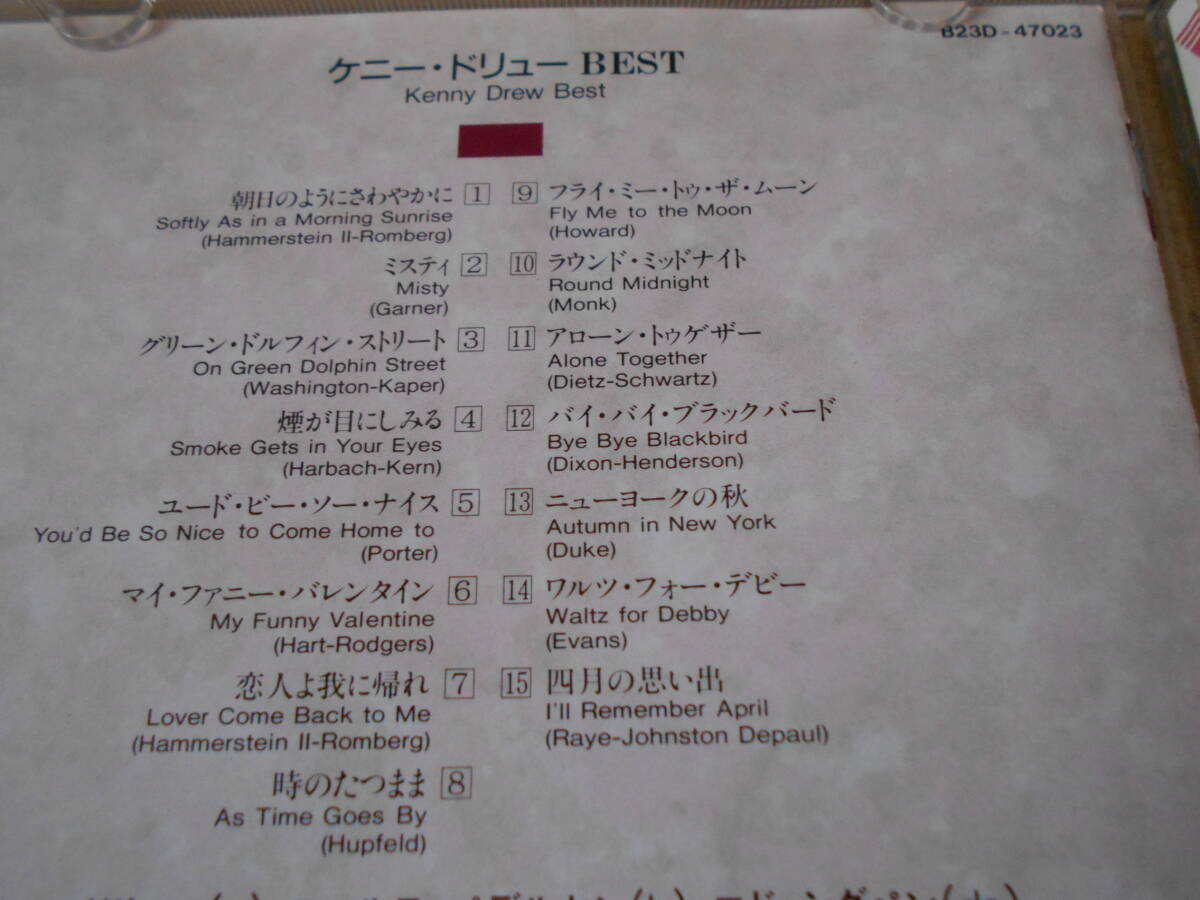 B23D-47023
ケニー・ドリュー BEST
Kenny Drew Best
朝日のようにさわやかに 1
Softly As in a Morning Sunrise
(Hammerstein II-Romberg)
ミスティ 2
Misty
(Garner)
グリーン・ドルフィン・ストリート 3
On Green Dolphin Street
(Washington-Kaper)
煙が目にしみる 4
Smoke Gets in Your Eyes
(Harbach-Kern)
ユード・ビー・ソー・ナイス 5
You'd Be So Nice to Come Home to
(Porter)
マイ・ファニー・バレンタイン 6
My Funny Valentine
(Hart-Rodgers)
恋人よ我に帰れ 7
Lover Come Back to Me
(Hammerstein II-Romberg)
時のたつまま 8
As Time Goes By
(Hupfeld)
9 フライ・ミー・トゥ・ザ・ムーン
Fly Me to the Moon
(Howard)
10 ラウンド・ミッドナイト
Round Midnight
(Monk)
11 アローン・トゥゲザー
Alone Together
(Dietz-Schwartz)
12 バイ・バイ・ブラックバード
Bye Bye Blackbird
(Dixon-Henderson)
13 ニューヨークの秋
Autumn in New York
(Duke)
14 ワルツ・フォー・デビー
Waltz for Debby
(Evans)
15 四月の思い出
I'll Remember April
(Raye-Johnston Depaul)